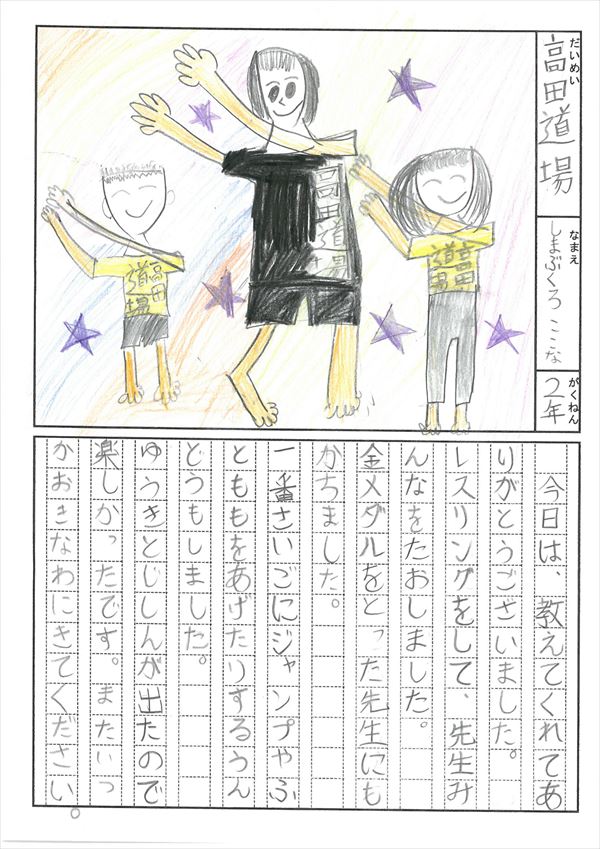 だいめい
高田道場
なまえ
しまぶくろ ここな
がくねん
2年
高田道場
高田道場
高田道場
今日は、教えてくれてあ
りがとうございました。
レスリングをして、先生み
んなをたおしました。
金メダルをとった先生にも
かちました。
一番さいごにジャンプやふ
とももをあげたりするうん
どうもしました。
ゆうきとじしんが出たので
楽しかったです。またいつ
かおきなわにきてください。